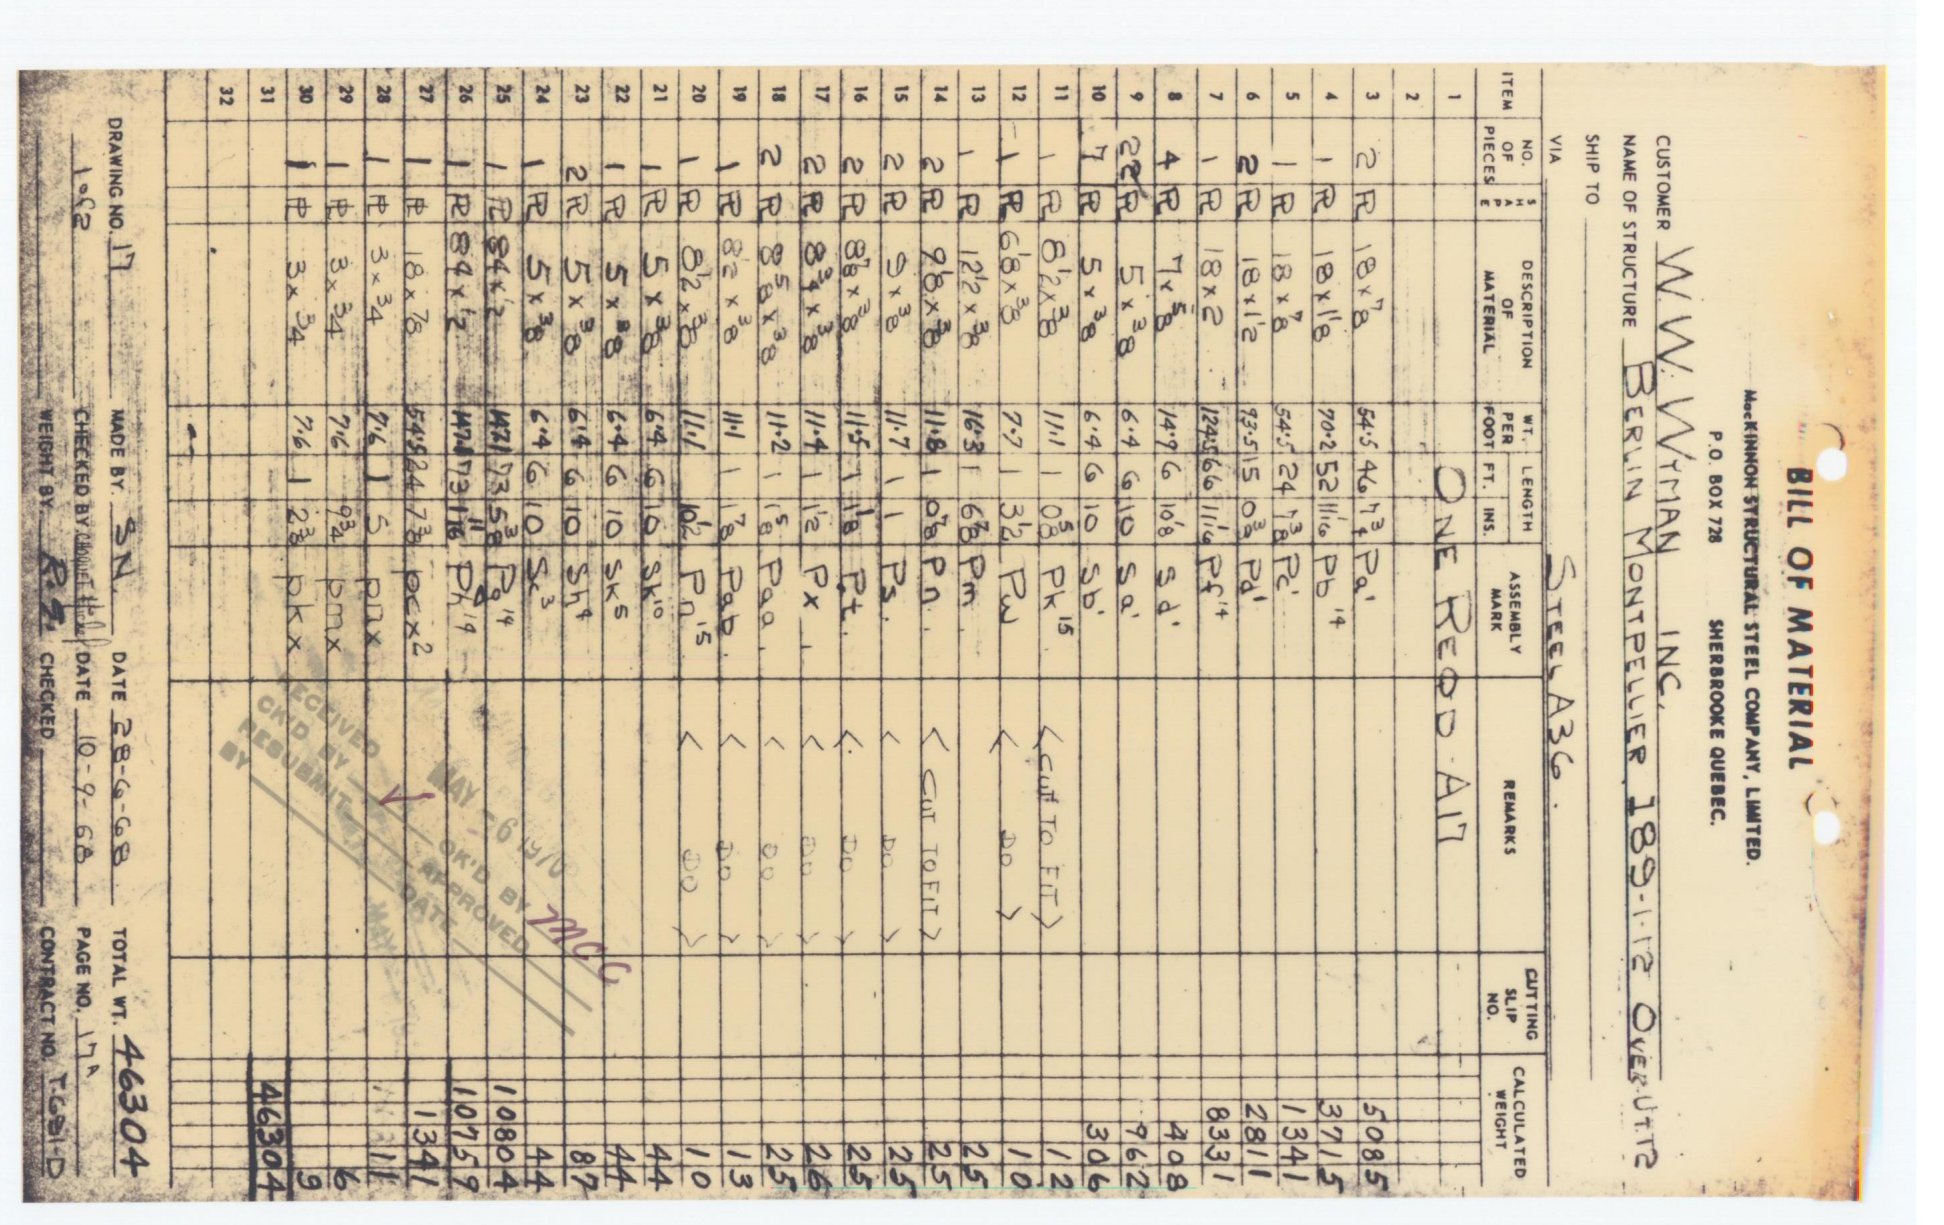 BILL OF MATERIAL
MacKINNON STRUCTURAL STEEL COMPANY, LIMITED.
P.O. BOX 728 SHERBROOKE QUEBEC.
CUSTOMER W. W. WYMAN INC.
NAME OF STRUCTURE BERLIN MONTPELLIER 189-1-12 OVER UTTS
SHIP TO
VIA STEEL A36.
ITEM NO. OF PIECES SHAPE DESCRIPTION OF MATERIAL WT. PER FOOT LENGTH FT. INS. ASSEMBLY MARK REMARKS CUTTING SLIP NO. CALCULATED WEIGHT
1 ONE REQD - A17
2
3 2 PL 18 x 7/8 54.5 46 Pa' 5085
4 1 PL 18 x 1 1/8 70.2 52 11 1/16 Pb'14 3715
5 1 PL 18 x 7/8 54.5 24 7 3/8 Pc' 1341
6 2 PL 18 x 1 1/2 93.5 15 0 3/8 Pd' 2811
7 1 PL 18 x 2 124.5 66 11 1/16 Pf'14 8331
8 4 PL 7 x 5/8 14.9 6 10 1/8 Sd' 408
9 22 PL 5 x 3/8 6.4 6 10 Sa' 962
10 7 PL 5 x 3/8 6.4 6 10 Sb' 306
11 1 PL 8 1/2 x 3/8 11.1 1 0 5/8 Pk 15 < CUT TO FIT > 12
12 1 PL 6 1/8 x 3/8 7.7 1 3 1/2 Pw < DO > 10
13 1 PL 12 1/2 x 3/8 16.3 1 6 7/8 Pm 25
14 2 PL 9 1/8 x 3/8 11.8 1 0 7/8 Pn. < CUT TO FIT > 25
15 2 PL 9 x 3/8 11.7 1 1 Ps. < DO > 25
16 2 PL 8 7/8 x 3/8 11.5 1 1 1/8 Pt. < DO > 25
17 2 PL 8 3/4 x 3/8 11.4 1 1 1/2 Px < DO > 26
18 2 PL 8 5/8 x 3/8 11.2 1 1 5/8 Paa < DO > 25
19 1 PL 8 1/2 x 3/8 11.1 1 1 7/8 Pab. < DO > 13
20 1 PL 8 1/2 x 3/8 11.1 10 1/2 Pn 15 < DO > 10
21 1 PL 5 x 3/8 6.4 6 10 Sk 10 44
22 1 PL 5 x 3/8 6.4 6 10 Sk 5 44
23 2 PL 5 x 3/8 6.4 6 10 Sh 4 87
24 1 PL 5 x 3/8 6.4 6 10 Sc 3 44
25 1 PL 84 x 1/2 147.1 73 5 3/8 Pg 14 10804
26 1 PL 84 x 1/2 147.1 73 1 11/16 Ph 14 10759
27 1 PL 18 x 7/8 54.5 24 7 3/8 pcx2 1341
28 1 PL 3 x 3/4 7.6 1 5 pnx 11
29 1 PL 3 x 3/4 7.6 9 3/4 pmx 6
30 1 PL 3 x 3/4 7.6 1 2 3/8 pkx 9
31 46304
32
RECEIVED MAY -6 1970
CK'D BY OK'D BY MCC
RESUBMIT APPROVED
BY DATE
DRAWING NO. 17 MADE BY. SN. DATE 28-6-68 TOTAL WT. 46304
CHECKED BY DATE 10-9-68 PAGE NO. 17A
WEIGHT BY CHECKED CONTRACT NO. T-6981-D